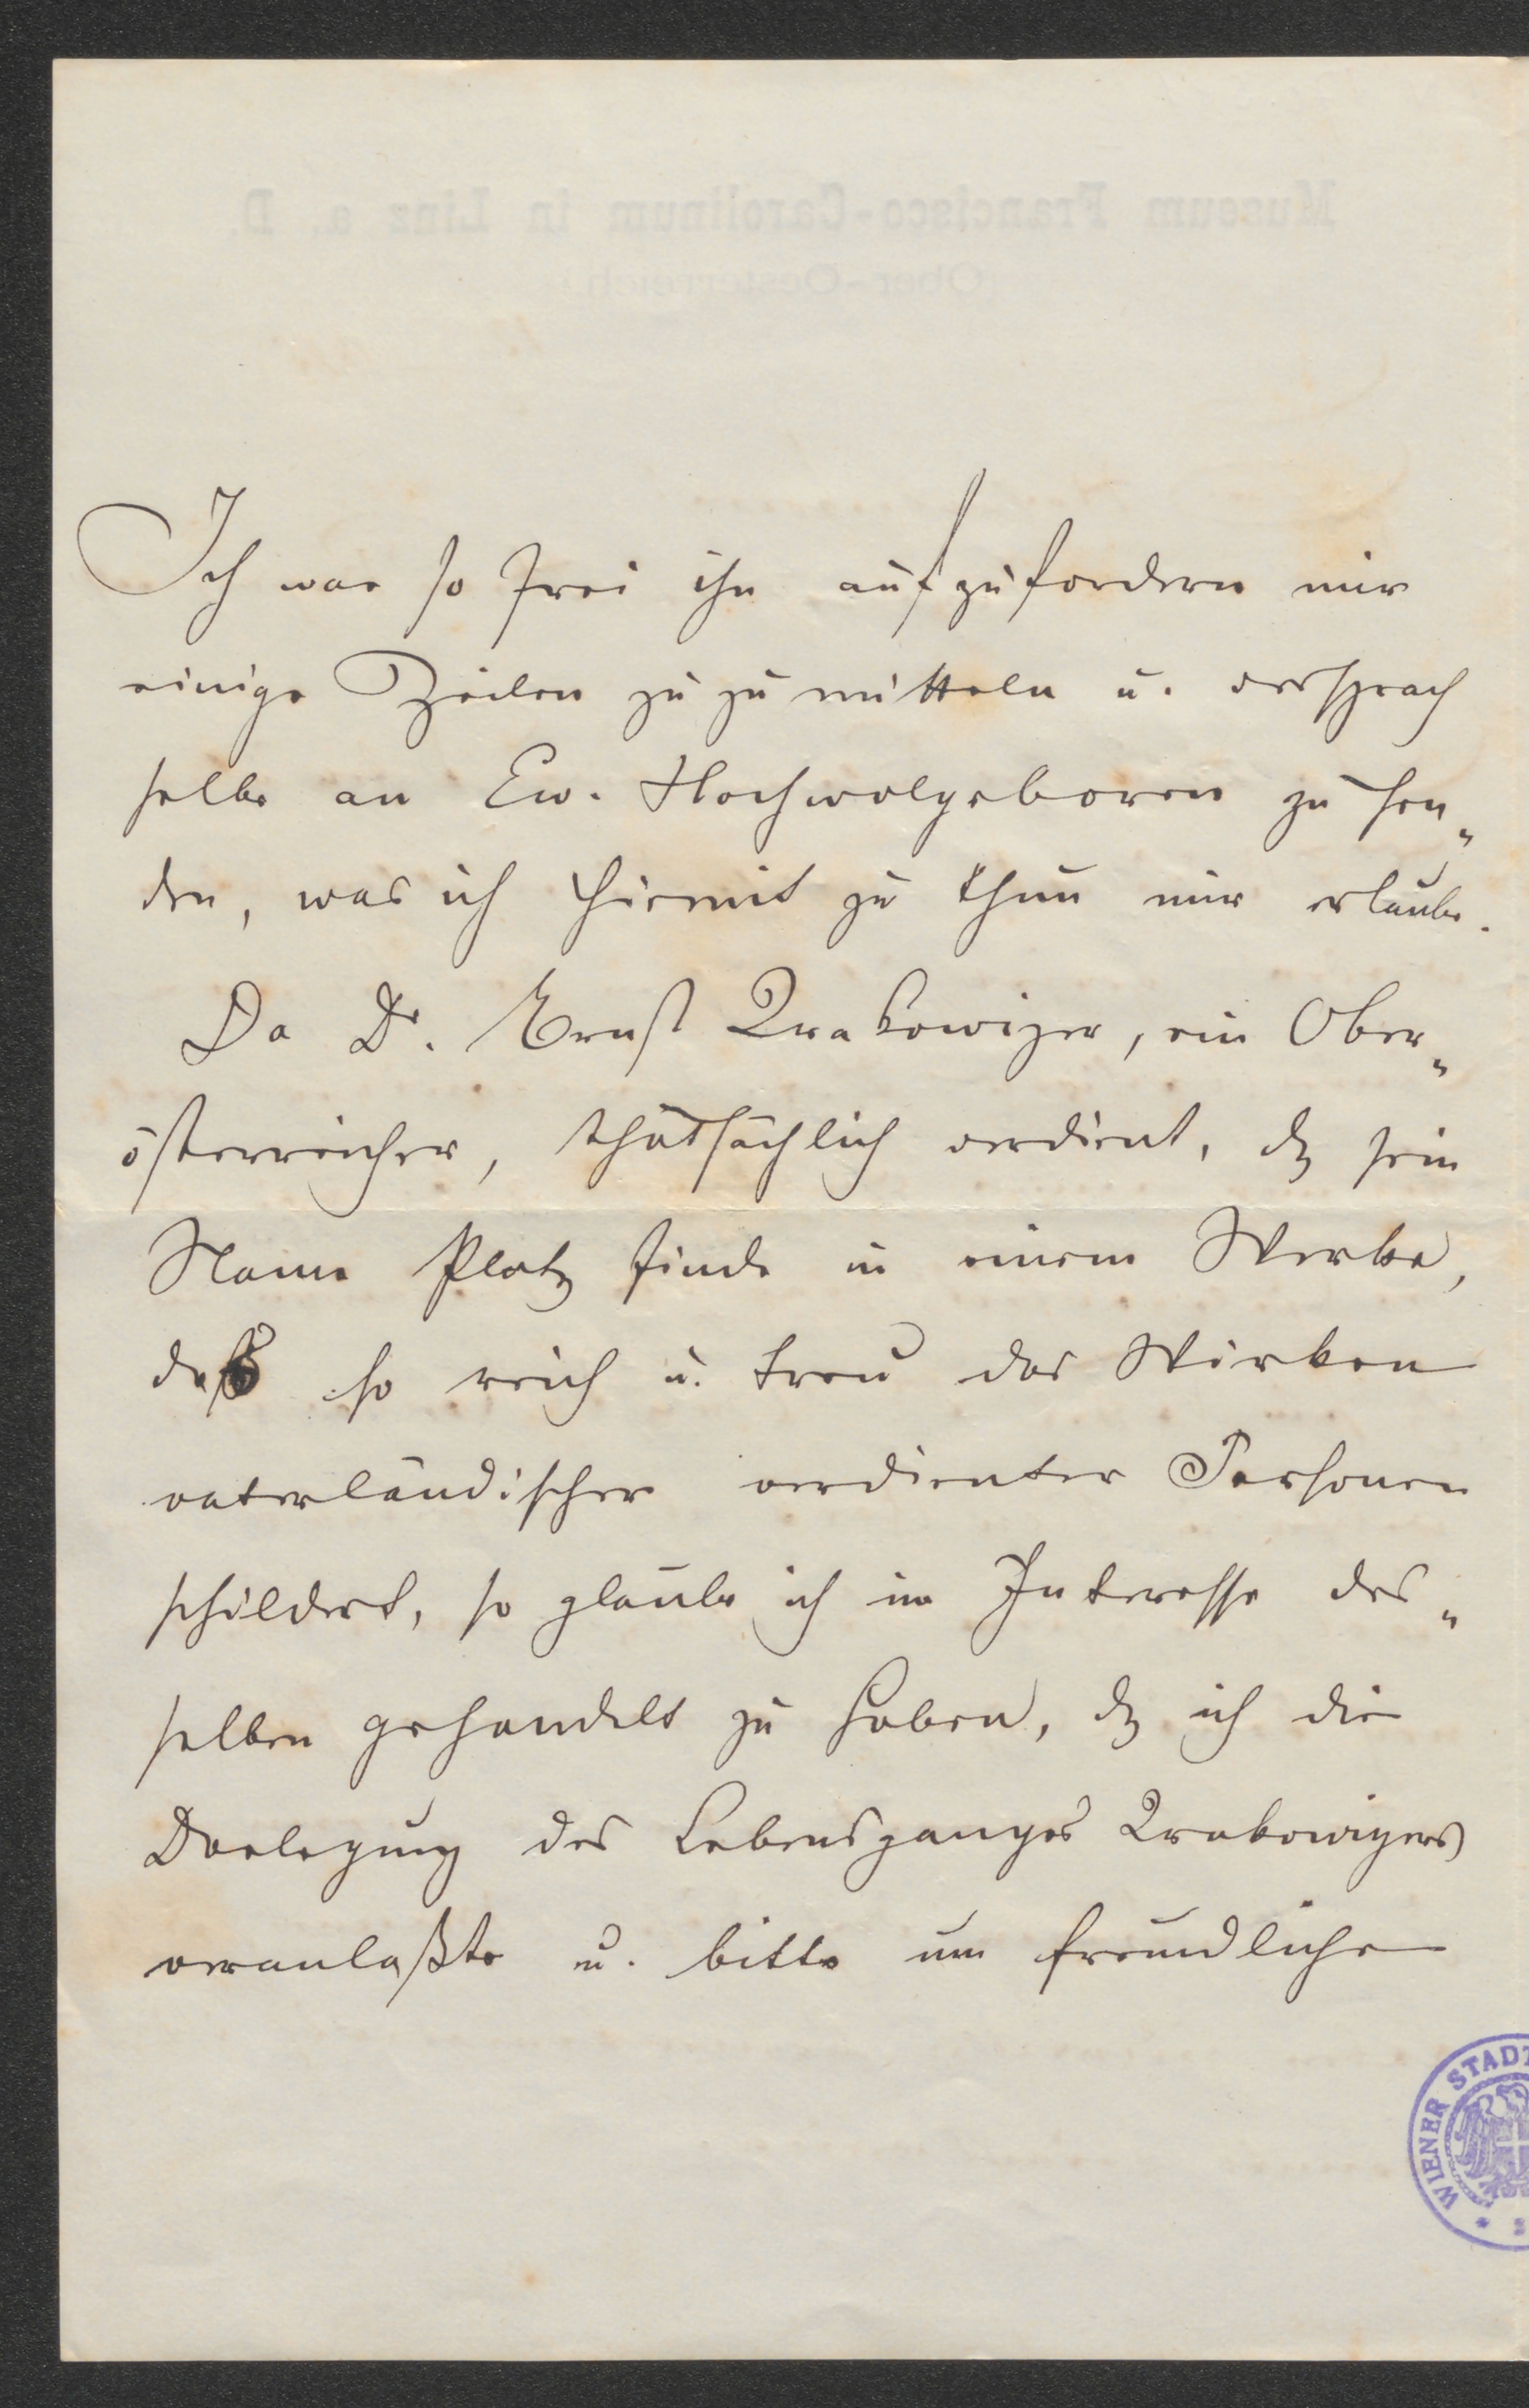 Museum Francisco-Carolinum in Linz a. D.
(Ober-Oesterreich.)
Ich war so frei ihn aufzufordern mir
einige Zeilen zu zu mitteln u. versprach
selbe an Ew. Hochwolgeboren zu sen„
den, was ich hiemit zu thun mir erlaube.
Da Dr. Ernst Krakowizer, ein Ober„
österreicher, thatsächlich verdient, dß sein
Name Platz finde in einem Werke,
das so reich u. treu das Wirken
vaterländischer verdienter Personen
schildert, so glaube ich im Interesse des„
selben gehandelt zu haben, dß ich die
Darlegung des Lebensganges Krakowizers
veranlaßte u. bitte um freundliche
WIENER STADT